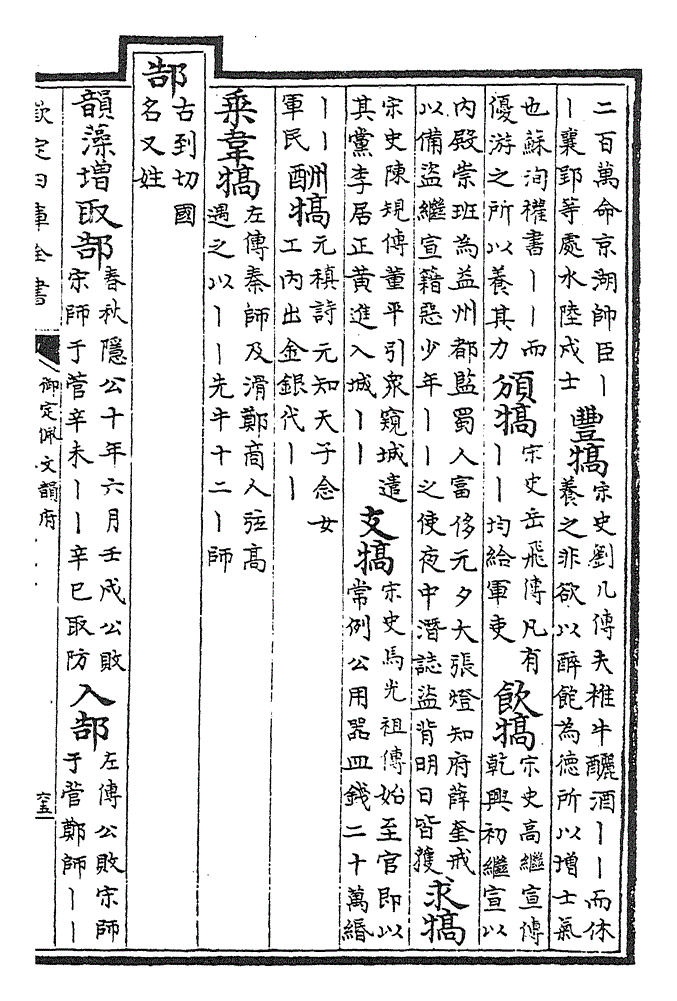 二百萬命京湖帥臣丨
丨襄郢等處水陸戍士
豐犒
宋史劉几傳夫椎牛釃酒丨丨而休
養之非欲以醉飽為德所以增士氣
也蘇洵權書丨丨而
優游之所以養其力
頒犒
宋史岳飛傳凡有
丨丨均給軍吏
飲犒
宋史高繼宣傳
乾興初繼宣以
內殿崇班為益州都監蜀人富侈元夕大張燈知府薛奎戒
以備盜繼宣籍惡少年丨丨之使夜中潛誌盜背明日皆獲
求犒
宋史陳規傳董平引衆窺城遣
其黨李居正黃進入城丨丨
支犒
宋史馬光祖傳始至官即以
常例公用器皿錢二十萬緡
丨丨
軍民
酬犒
元稹詩元知天子念女
工內出金銀代丨丨
乘韋犒
左傳秦師及滑鄭商人弦高
遇之以丨丨先牛十二丨師
郜
古到切國
名又姓
韻藻增取郜
春秋隱公十年六月壬戌公敗
宋師于菅辛未丨丨辛巳取防
入郜
左傳公敗宋師
于菅鄭師丨丨
欽定四庫全書
御定佩文韻府